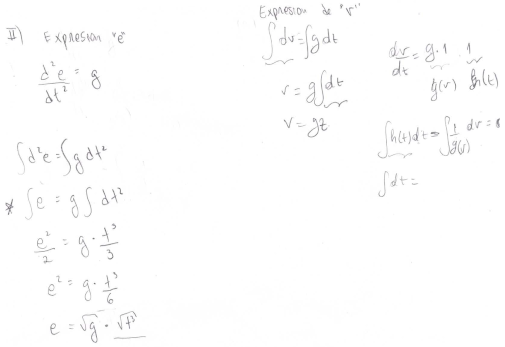 II) Expresion "e"
d²e/dt² = g
∫d²e = ∫g dt²
* ∫e = g ∫ dt²
e²/2 = g · t³/3
e² = g · t³/6
e = √g · √t³
Expresion de "v"
∫dv = ∫g dt
v = g∫dt
v = gt
dv/dt = g · 1 · 1
g(v) h(t)
∫h(t)dt = ∫ 1/g(v) dv =
∫dt =